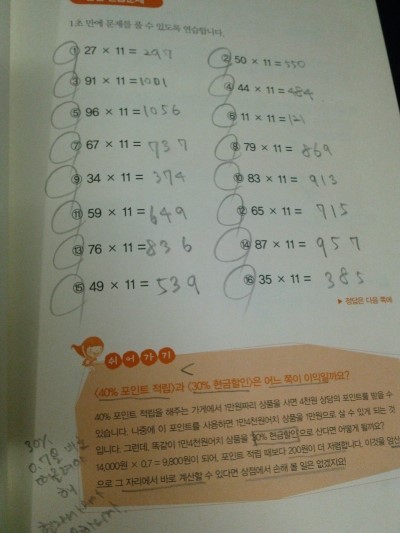 1초 만에 문제를 풀 수 있도록 연습합니다.
① 27 × 11 = 297
② 50 × 11 = 550
③ 91 × 11 = 1001
④ 44 × 11 = 484
⑤ 96 × 11 = 1056
⑥ 11 × 11 = 121
⑦ 67 × 11 = 737
⑧ 79 × 11 = 869
⑨ 34 × 11 = 374
⑩ 83 × 11 = 913
⑪ 59 × 11 = 649
⑫ 65 × 11 = 715
⑬ 76 × 11 = 836
⑭ 87 × 11 = 957
⑮ 49 × 11 = 539
⑯ 35 × 11 = 385
▶ 정답은 다음 쪽에
쉬어가기
<
〈40% 포인트 적립〉과 〈30% 현금할인〉은 어느 쪽이 이익일까요?
40% 포인트 적립을 해주는 가게에서 1만원짜리 상품을 사면 4천원 상당의 포인트를 받을 수
있습니다. 나중에 이 포인트를 사용하면 1만4천원어치 상품을 1만원으로 살 수 있게 되는 것
입니다. 그런데, 똑같이 1만4천원어치 상품을 30% 현금할인으로 산다면 어떻게 될까요?
14,000원 × 0.7 = 9,800원이 되어, 포인트 적립 때보다 200원이 더 저렴합니다. 이것을 암산
으로 그 자리에서 바로 계산할 수 있다면 상점에서 손해 볼 일은 없겠지요!
30%